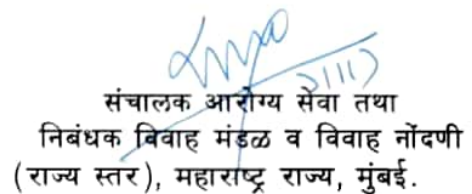 संचालक आरोग्य सेवा तथा
निबंधक विवाह मंडळ व विवाह नोंदणी
(राज्य स्तर), महाराष्ट्र राज्य, मुंबई.